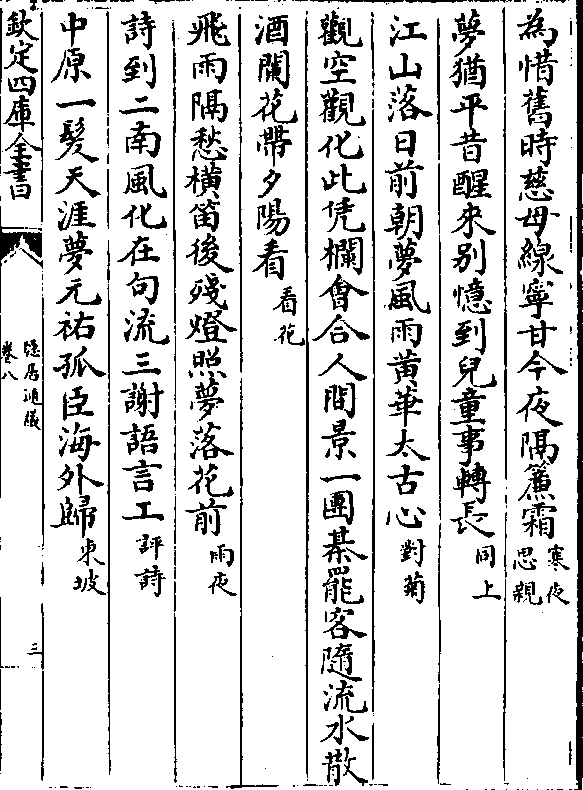 為惜舊時慈母線寧甘今夜隔簾霜寒夜思親
夢猶平昔醒來别憶到兒童事轉長同上
江山落日前朝夢風雨黄華太古心對菊
觀空觀化此凭欄會合人間景一團棊罷客隨流水散
酒闌花帶夕陽看看花
飛雨隔愁橫笛後殘燈照夢落花前雨夜
詩到二南風化在句流三謝語言工評詩
中原一髮天涯夢元祐孤臣海外歸東坡
欽定四庫全書
隱居通議
卷八
三